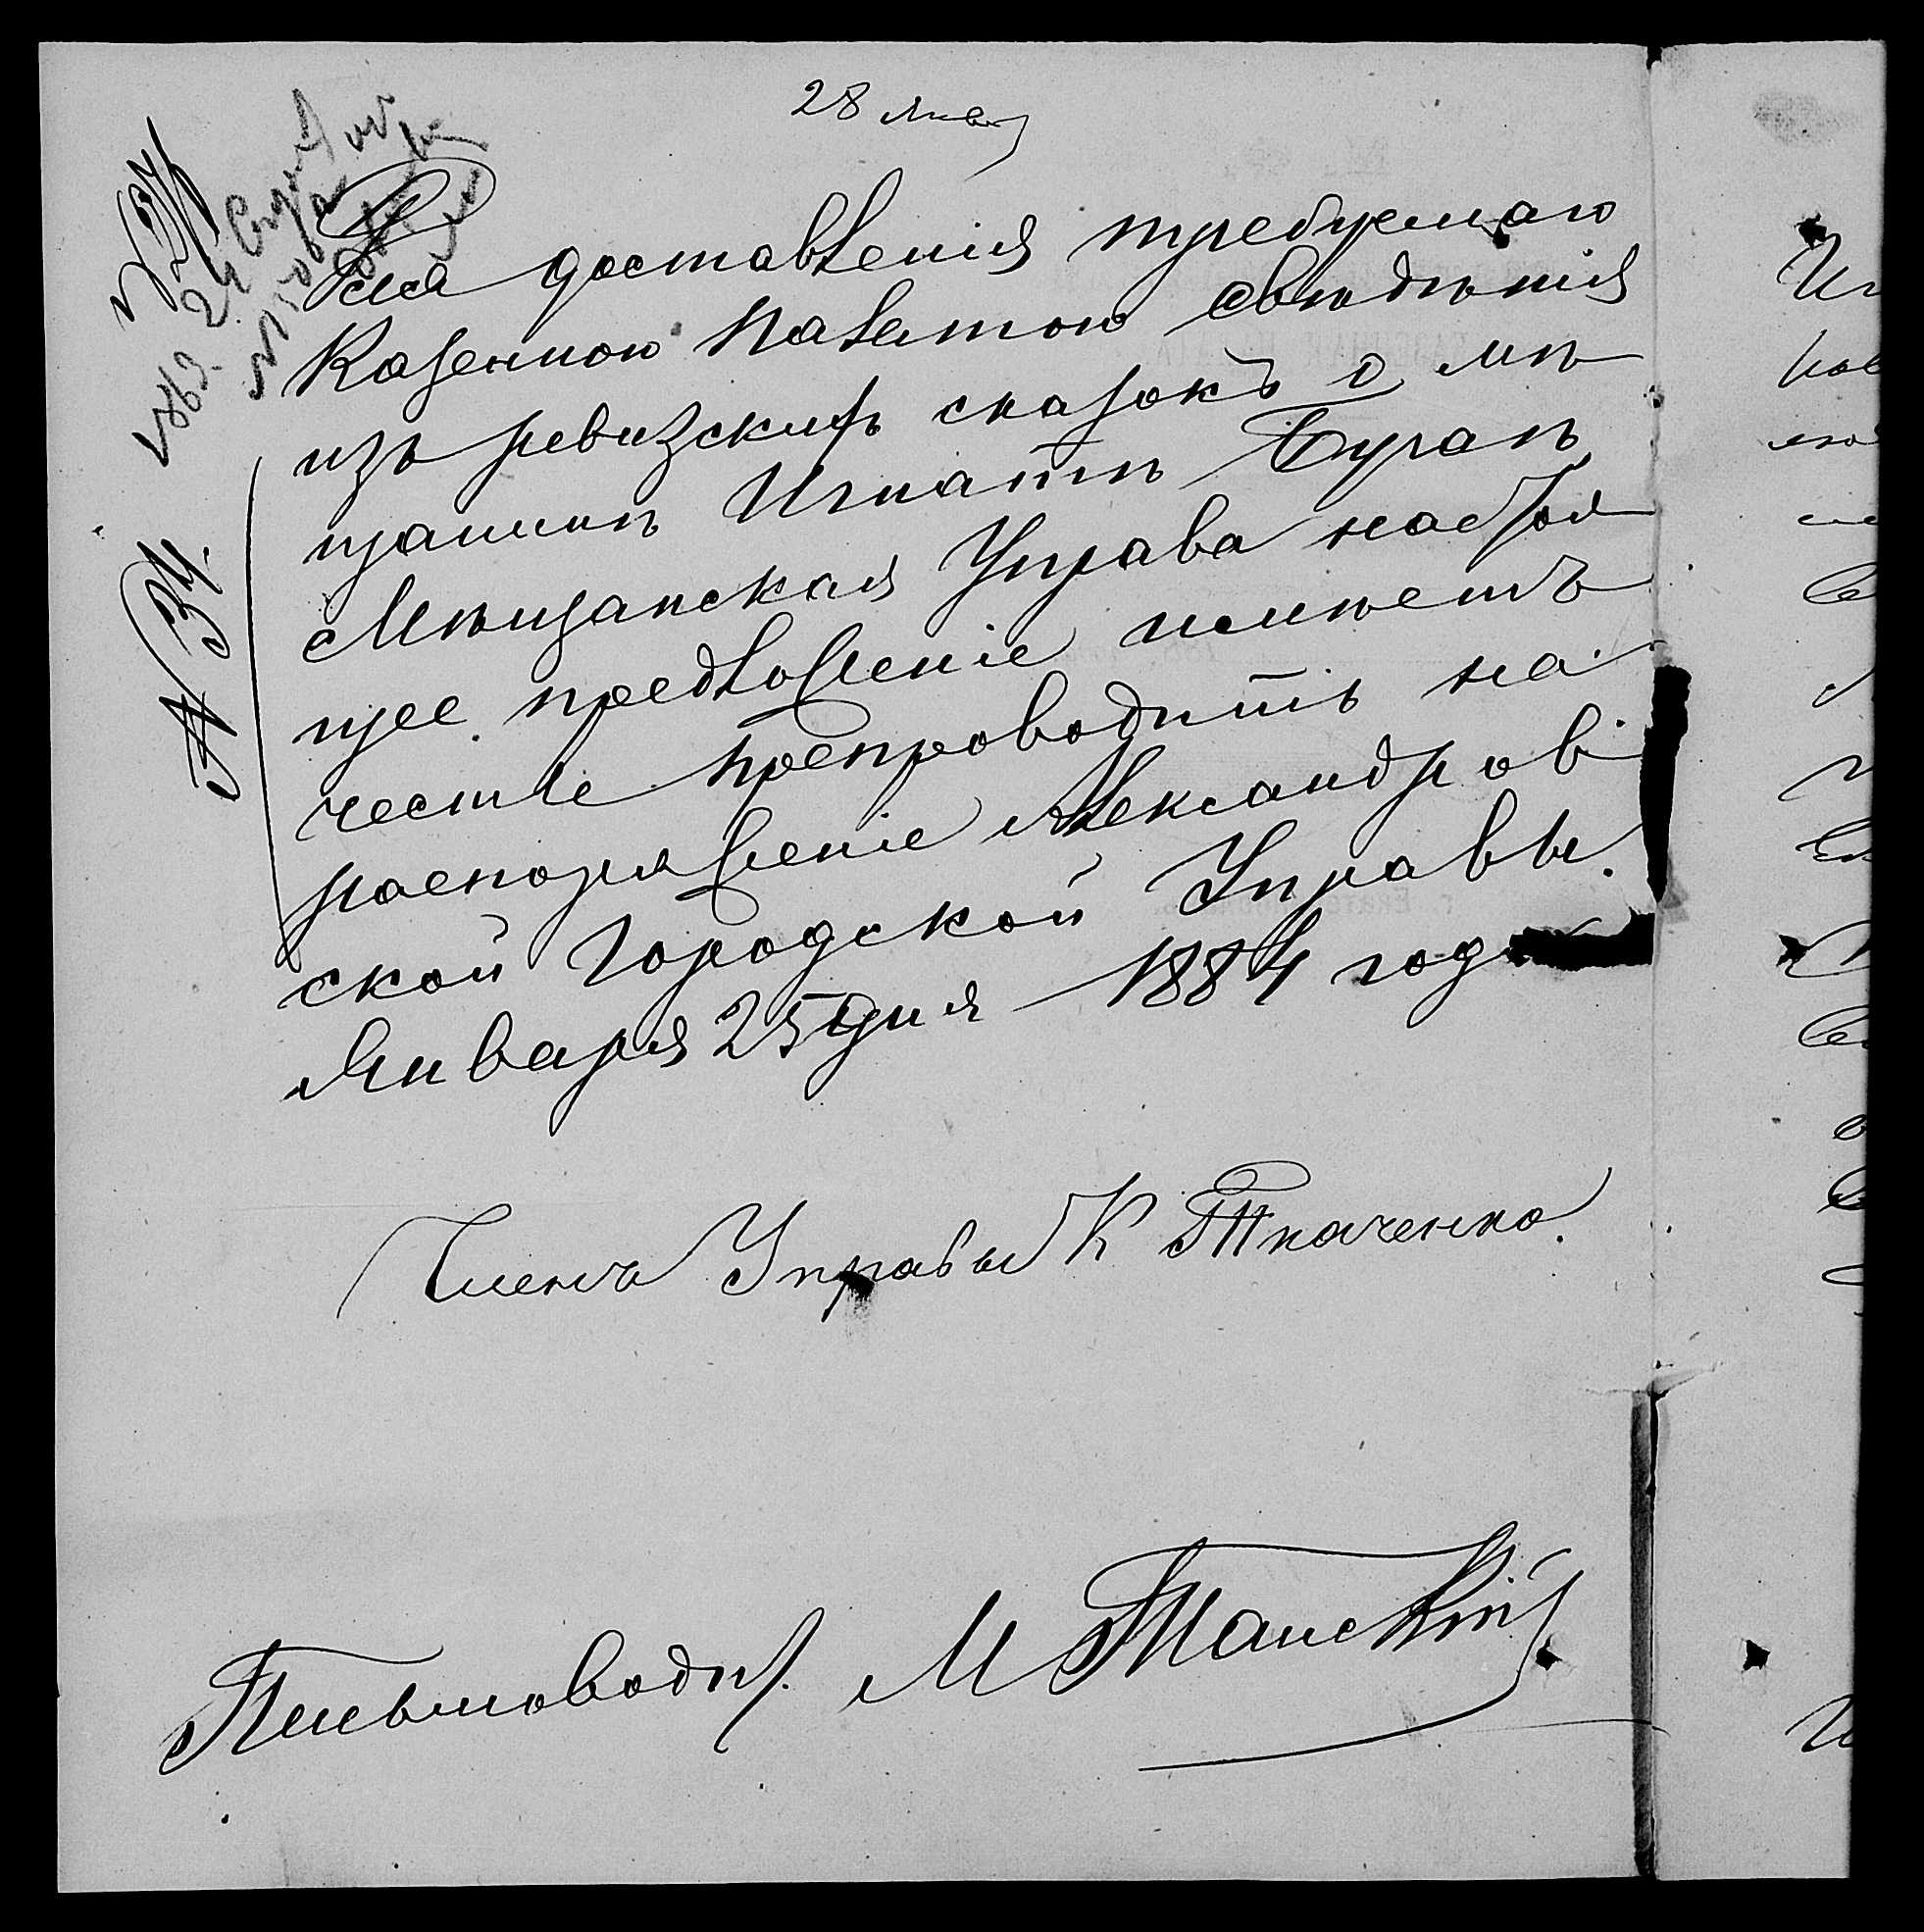 28 Янв
Для доставленія требуемаго
Казенною Палатою свѣдѣнія
изъ ревизскихъ сказокъ о мѣ
щанинѣ Игнатіѣ
Мѣщанская Управа настоя
щее предложеніе имѣетъ
честь препроводить на
распоряженіе Александров
ской Городской Управы.
Января 25 дня 1884 года
№ 34.
Членъ Управы К Ткаченко.
Письмоводи. М